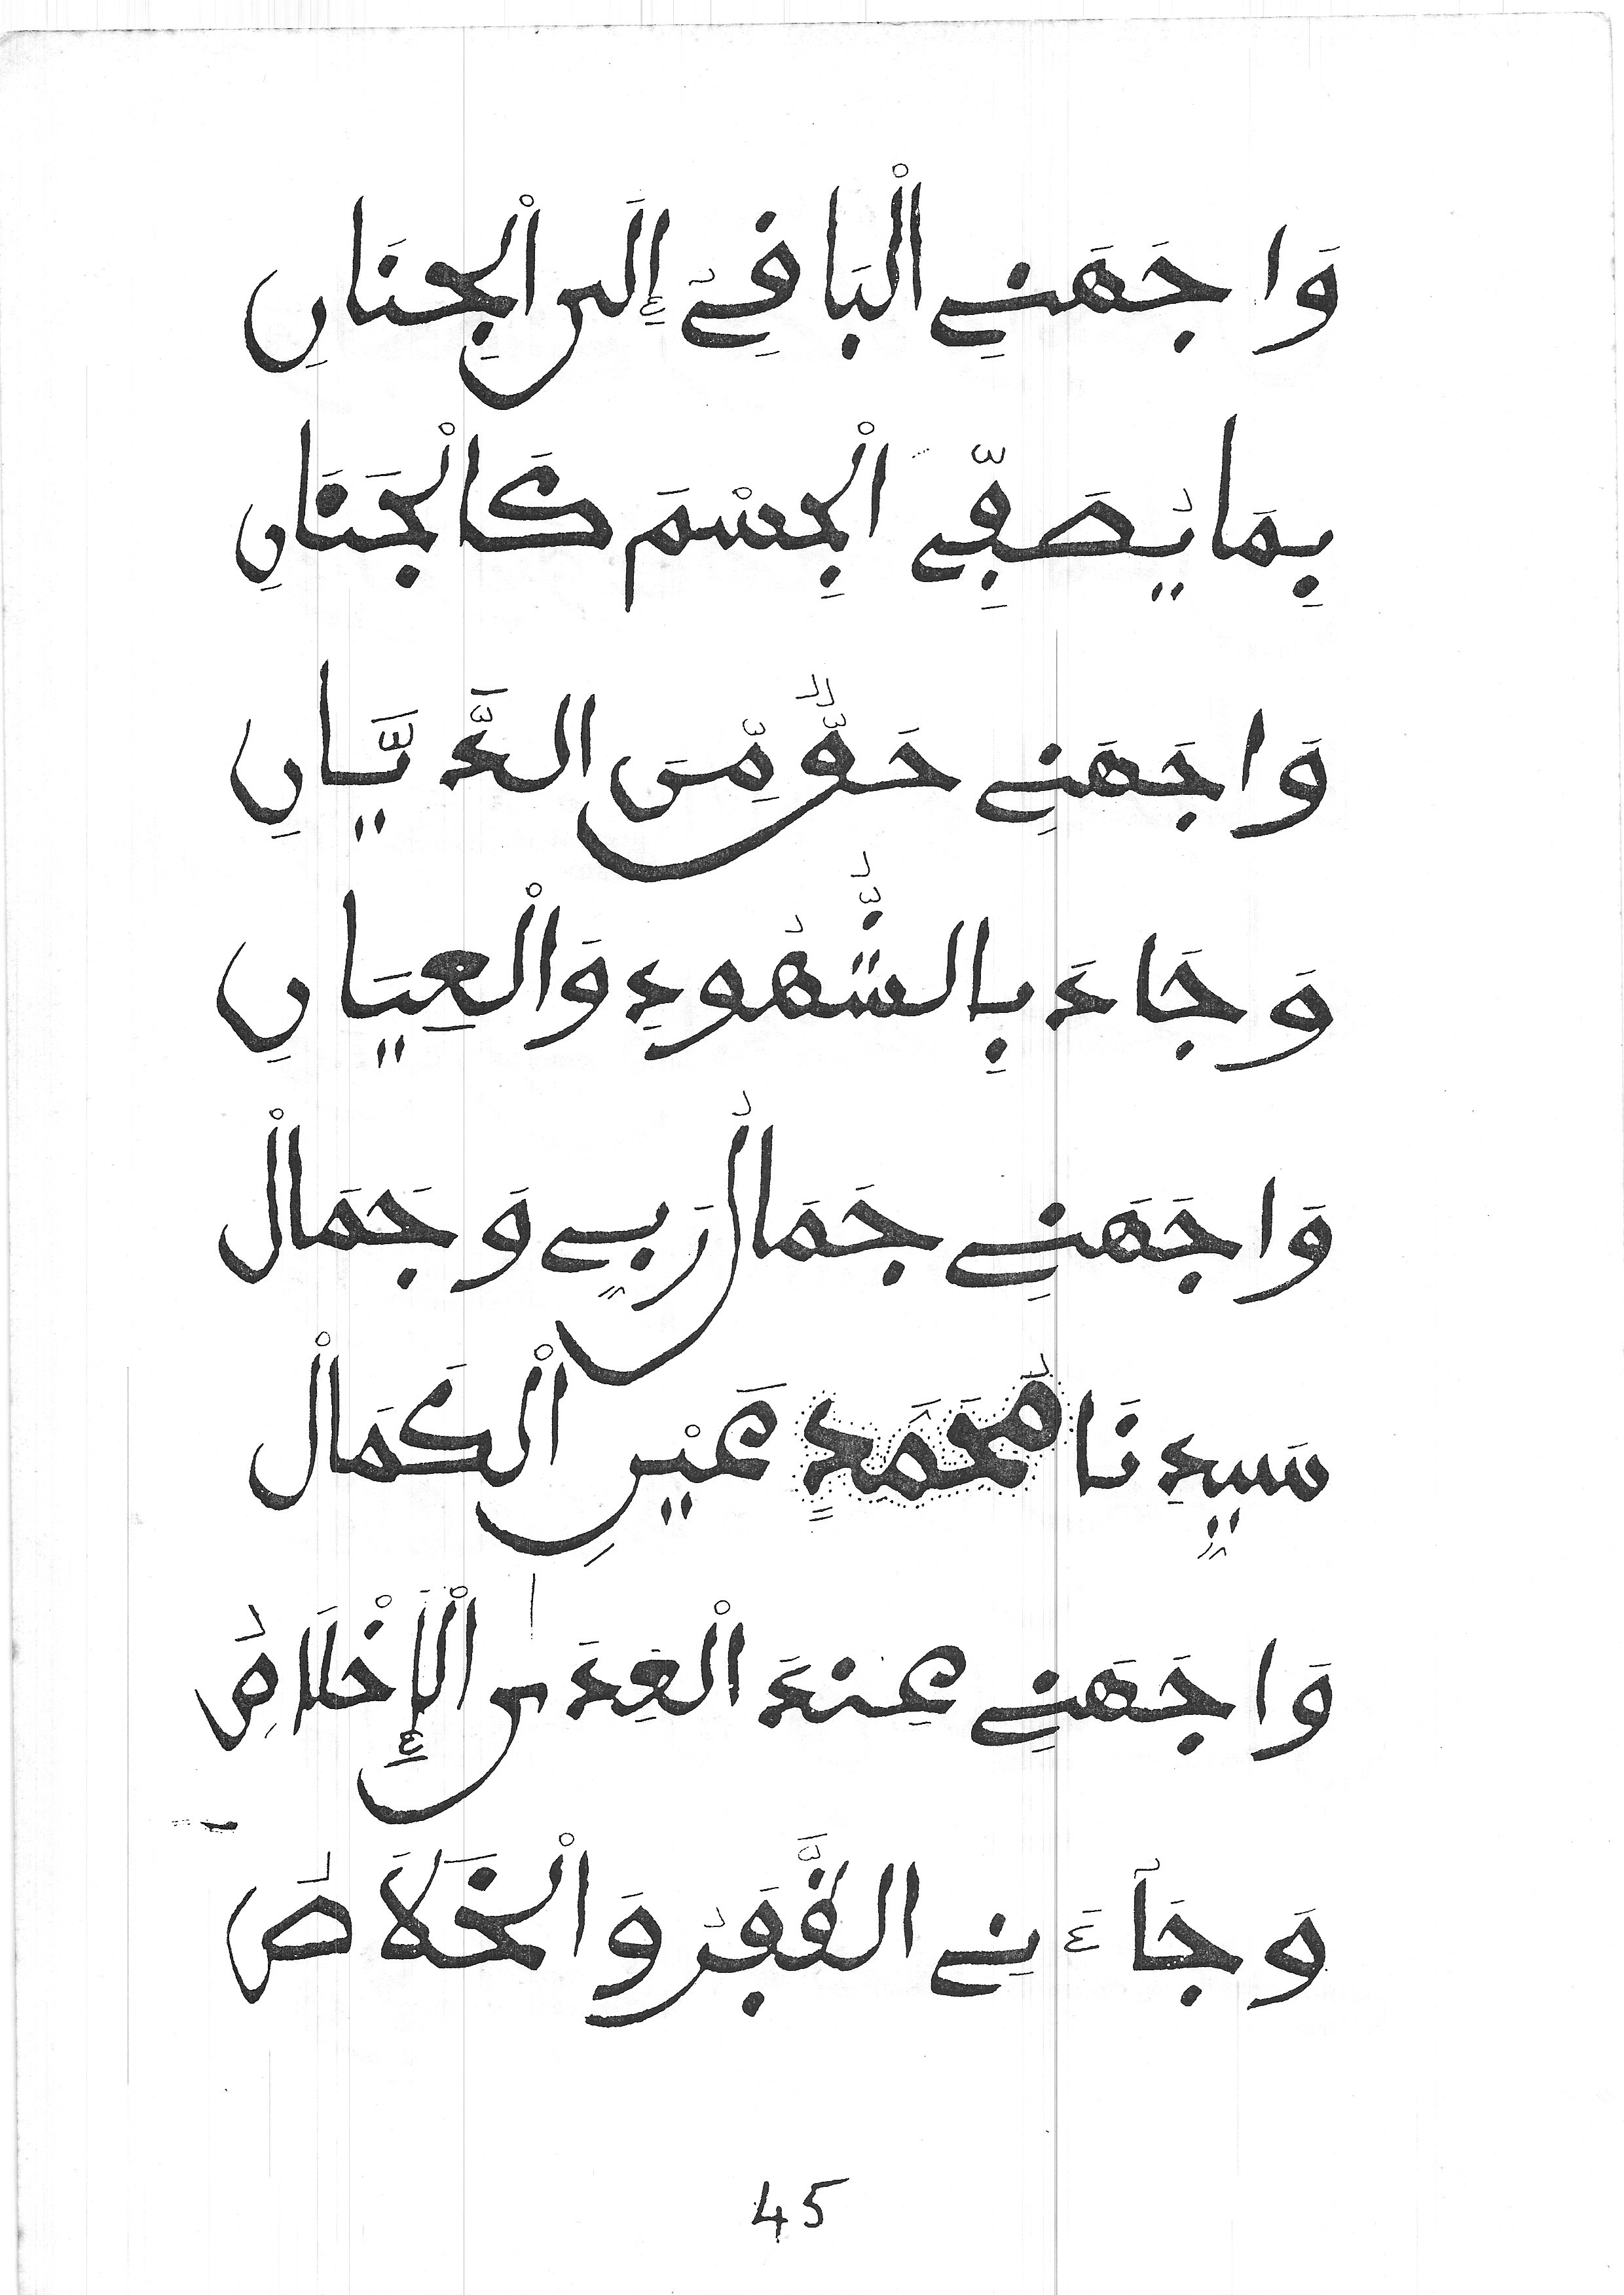 وَاجَهَنِي الْبَاقِيُ إِلَى الْجِنَانِ
بِمَا يُصَفِّي الْجِسْمَ كَالْجَنَانِ
وَاجَهَنِي حَقٌّ مِّنَ الدَّيَّانِ
وَجَادَ بِالشُّهُودِ وَالْعِيَانِ
وَاجَهَنِي جَمَالُ رَبِّي وَجَمَالْ
سَيِّدِنَا مُحَمَّدٍ عَيْنِ الْكَمَالْ
وَاجَهَنِي عِنْدَ الْعِدَى الْإِخْلَاصُ
وَجَآءَنِي الْفَّقْرُ وَالْخَلَاصُ
45